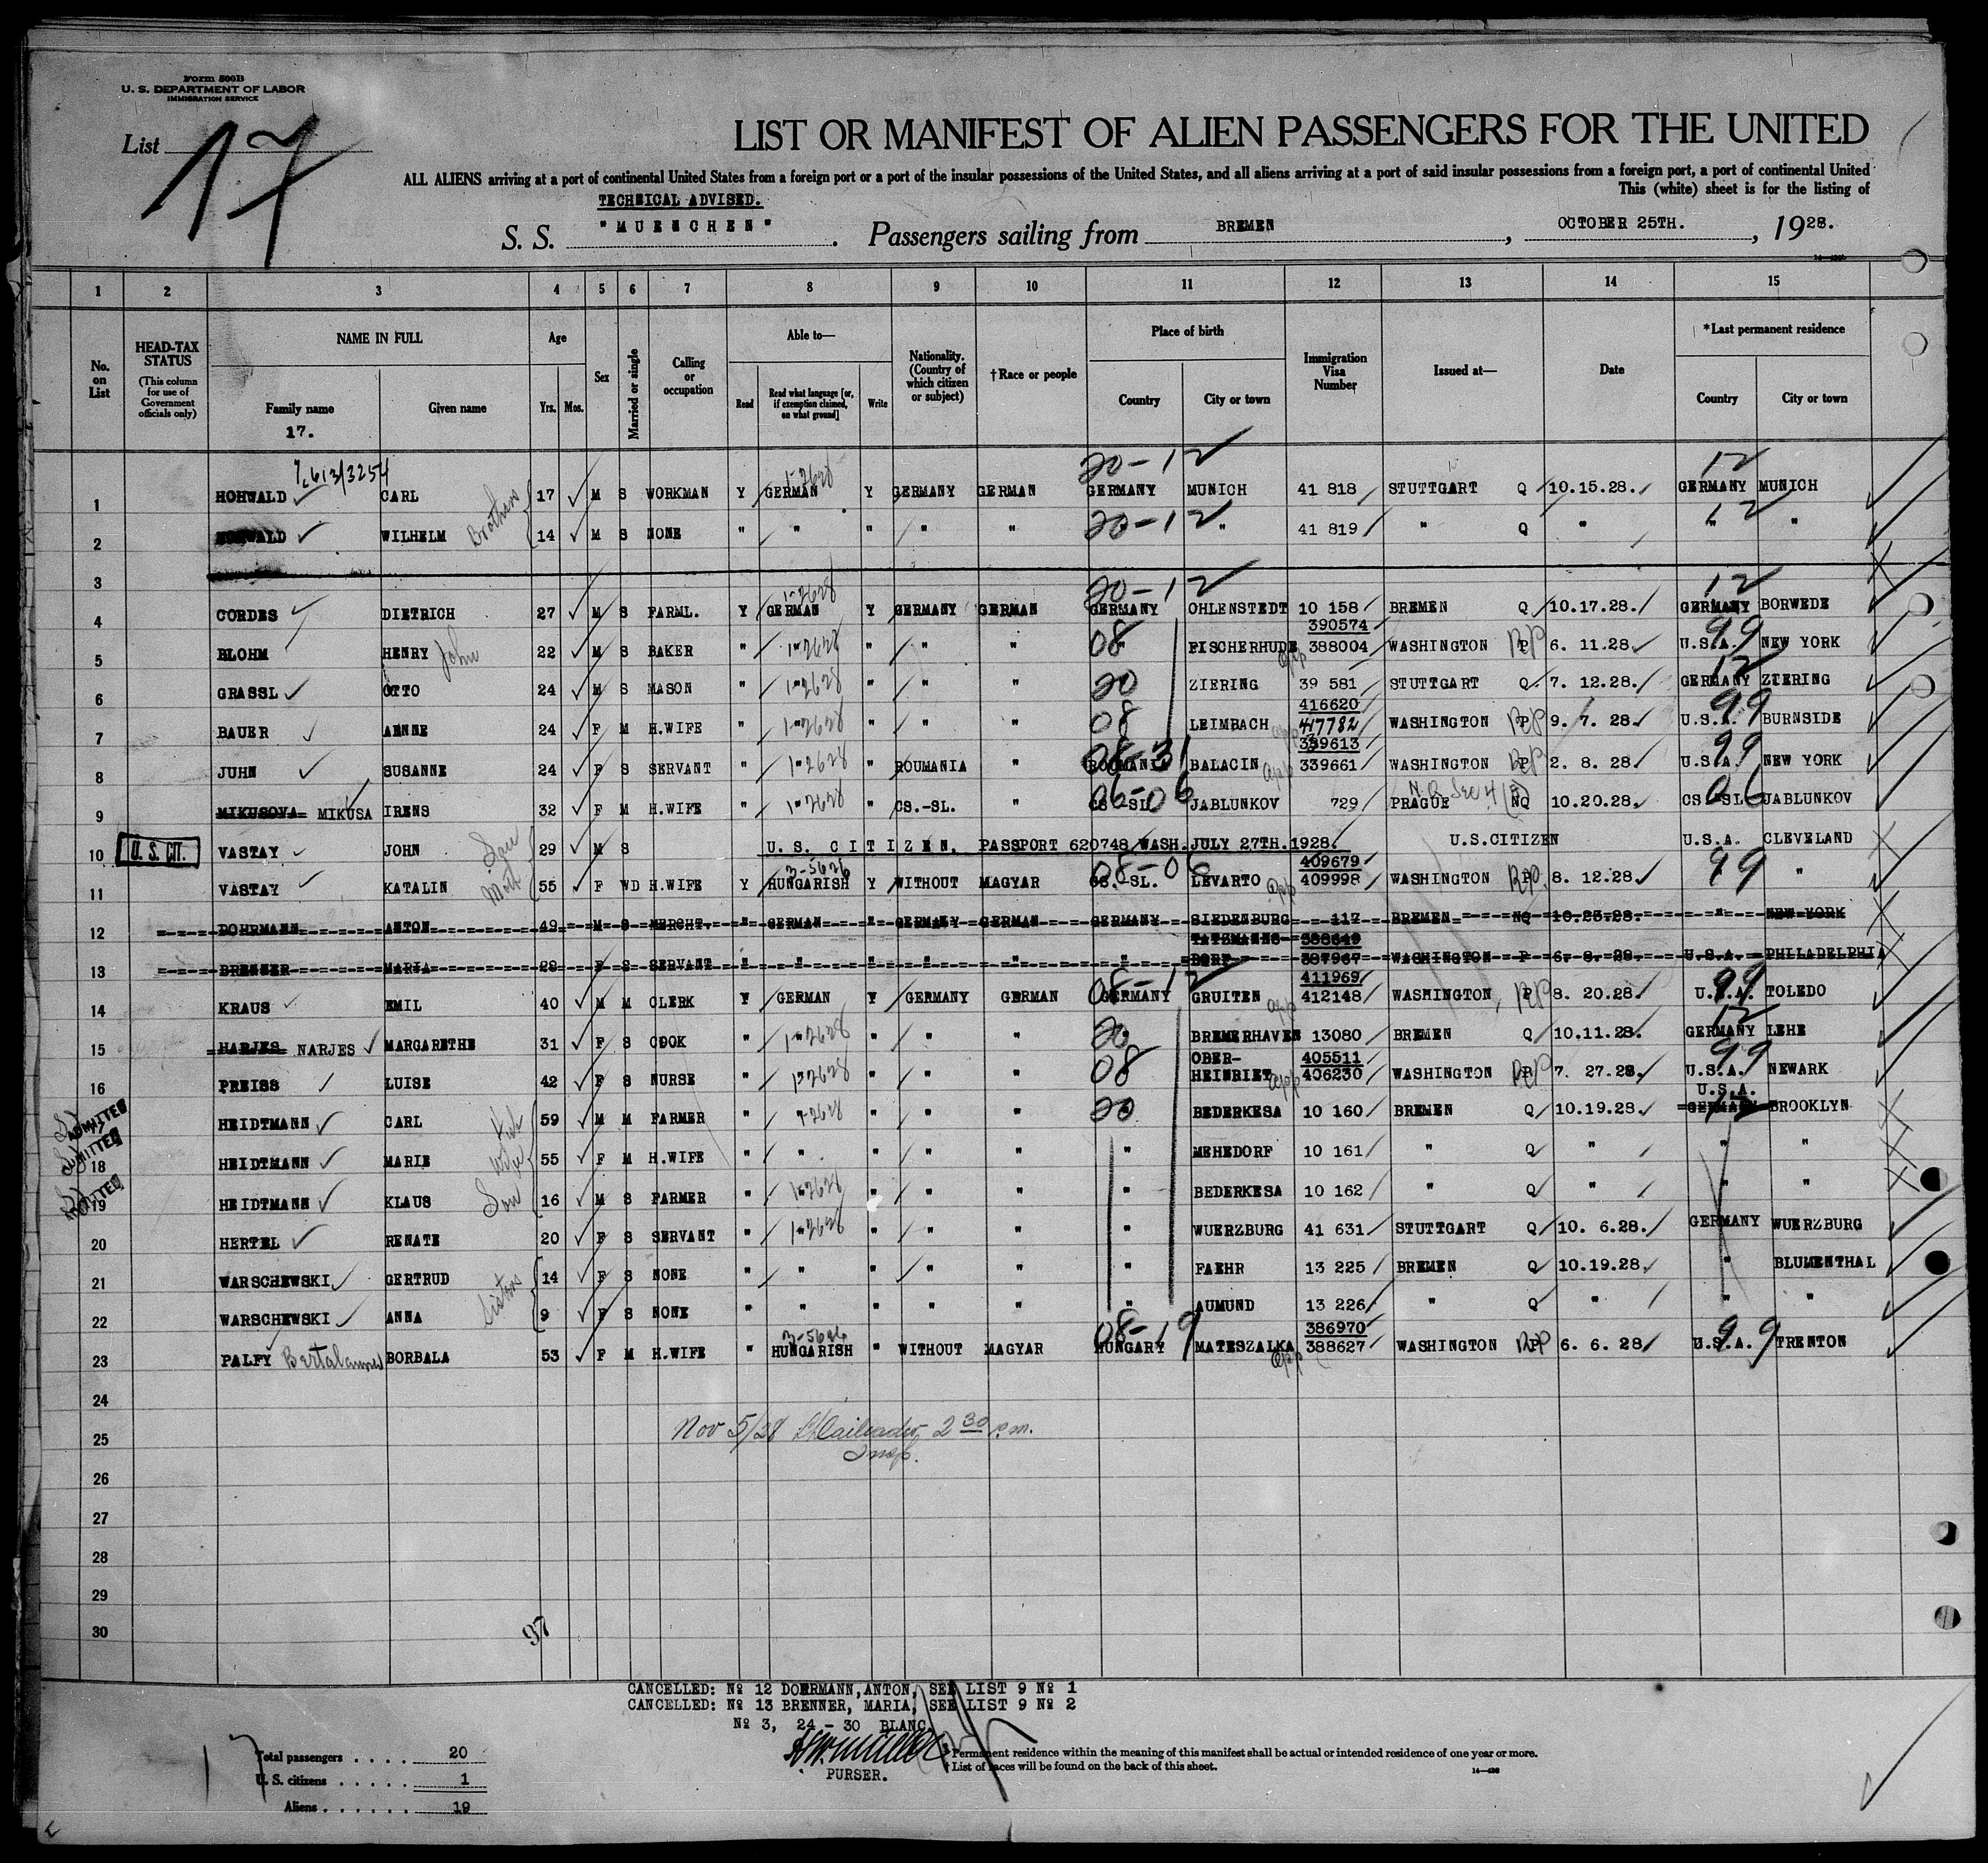 Form 500B
U. S. DEPARTMENT OF LABOR
IMMIGRATION SERVICE
List 17
LIST OR MANIFEST OF ALIEN PASSENGERS FOR THE UNITED
ALL ALIENS arriving at a port of continental United States from a foreign port or a port of the insular possessions of the United States, and all aliens arriving at a port of said insular possessions from a foreign port, a port of continental United
This (white) sheet is for the listing of
TECHNICAL ADVISED.
S. S. "MUENCHEN". Passengers sailing from BREMEN, OCTOBER 25TH., 1928.
1 2 3 4 5 6 7 8 9 10 11 12 13 14 15
No. on List
HEAD-TAX STATUS (This column for use of Government officials only)
NAME IN FULL Family name Given name
Age Yrs. Mos.
Sex
Married or single
Calling or occupation
Able to— Read Read what language [or, if exemption claimed, on what ground] Write
Nationality. (Country of which citizen or subject)
†Race or people
Place of birth Country City or town
Immigration Visa Number
Issued at—
Date
*Last permanent residence Country City or town
17.
2613/3254 1-2628 20-12 12
1 HOHWALD CARL Brothers 17 M S WORKMAN Y GERMAN Y GERMANY GERMAN GERMANY MUNICH 41 818 STUTTGART Q 10.15.28. GERMANY MUNICH
2 HOHWALD WILHELM 14 M S NONE " " " " " 20-12 " 41 819 " Q " 12 " "
3
1-2628 20-12 12
4 CORDES DIETRICH 27 M S FARML. Y GERMAN Y GERMANY GERMAN GERMANY OHLENSTEDT 10 158 BREMEN Q 10.17.28. GERMANY BORWEDE
390574
5 BLOHM HENRY John 22 M S BAKER " 1-2628 " " " 08 FISCHERHUDE app 388004 WASHINGTON P RP 6. 11.28. U.S.A. 99 NEW YORK
6 GRASSL OTTO 24 M S MASON " 1-2628 " " " 20 ZIERING 39 581 STUTTGART Q. 7. 12.28. GERMANY 12 ZIERING
416620
7 BAUER AENNE 24 F M H.WIFE " 1-2628 " " " 08 LEIMBACH app 417782 WASHINGTON P RP 9. 7. 28. U.S.A. 99 BURNSIDE
339613
8 JUHN SUSANNE 24 F S SERVANT " 1-2628 " ROUMANIA " ROUMANIA 08-31 BALACIN app 339661 WASHINGTON P RP 2. 8. 28. U.S.A. 99 NEW YORK
N.Q. Sec 4
9 MIKUSOVA MIKUSA IRENS 32 F M H.WIFE " 1-2628 " CS.-SL. " CS-SL 06-06 JABLUNKOV 729 PRAGUE NQ 10.20.28. CS.-SL 06 JABLUNKOV
10 U.S. CIT. VASTAY JOHN Son 29 M S U. S. CITIZEN, PASSPORT 620748 WASH. JULY 27TH.1928. U.S.CITIZEN U.S.A. CLEVELAND
3-5626 08-06 409679
11 VASTAY KATALIN Moth 55 F WD H.WIFE Y HUNGARISH Y WITHOUT MAGYAR CS.-SL. LEVARTO app 409998 WASHINGTON P RP 8. 12.28. 99 "
12 DOHRMANN ANTON 49 M S MERCHT. " GERMAN " GERMANY GERMAN GERMANY SIEDENBURG 117 BREMEN NQ 10.23.28. " NEW YORK
TATZMANNS 388649
13 BRENNER MARIA 28 F S SERVANT " " " " " " DORF 387967 WASHINGTON P 6. 8. 28. U.S.A. PHILLADELPHIA
08-12 411969
14 KRAUS EMIL 40 M M CLERK Y GERMAN Y GERMANY GERMAN GERMANY GRUITEN app 412148 WASHINGTON, P RP 8. 20.28. U.S.A. 99 TOLEDO
15 HARJES NARJES MARGARETHE 31 F S COOK " 1-2628 " " " 20 BREMERHAVEN 13080 BREMEN Q 10.11.28. GERMANY 12 LEHE
OBER- 405511
16 PREISS LUISE 42 F S NURSE " 1-2628 " " " 08 HEINRIET app 406230 WASHINGTON P RP 7. 27.28. U.S.A. 99 NEWARK
U.S.A.
ADMITTED HEIDTMANN CARL 59 M M FARMER " 1-2628 " " " 20 BEDERKESA 10 160 BREMEN Q 10.19.28. GERMANY BROOKLYN
ADMITTED 18 HEIDTMANN MARIE wife 55 F M H.WIFE " " " " " " MEHEDORF 10 161 " Q " " "
ADMITTED 19 HEIDTMANN KLAUS Son 16 M S FARMER " 1-2628 " " " " BEDERKESA 10 162 " Q " " "
20 HERTEL RENATE 20 F S SERVANT " 1-2628 " " " " WUERZBURG 41 631 STUTTGART Q 10. 6.28. GERMANY WUERZBURG
21 WARSCHEWSKI GERTRUD Sisters 14 F S NONE " " " " " " FAEHR 13 225 BREMEN Q 10.19.28. " BLUMENTHAL
22 WARSCHEWSKI ANNA 9 F S NONE " " " " " " AUMUND 13 226 " Q " " "
3-5626 08-19 386970
23 PALFY BORBALA 53 F M H.WIFE " HUNGARISH " WITHOUT MAGYAR HUNGARY MATESZALKA app 388627 WASHINGTON P RP 6. 6. 28 U.S.A. 99 TRENTON
24
25 Nov 5/28 2 30 p.m.
Insp.
26
27
28
29
30
97
CANCELLED: № 12 DOHRMANN, ANTON, SEE LIST 9 № 1
CANCELLED: № 13 BRENNER, MARIA, SEE LIST 9 № 2
№ 3, 24 - 30 BLANC.
PURSER.
17
Total passengers . . . . 20
U. S. citizens . . . . . 1
Aliens . . . . . . 19
* Permanent residence within the meaning of this manifest shall be actual or intended residence of one year or more.
† List of races will be found on the back of this sheet.